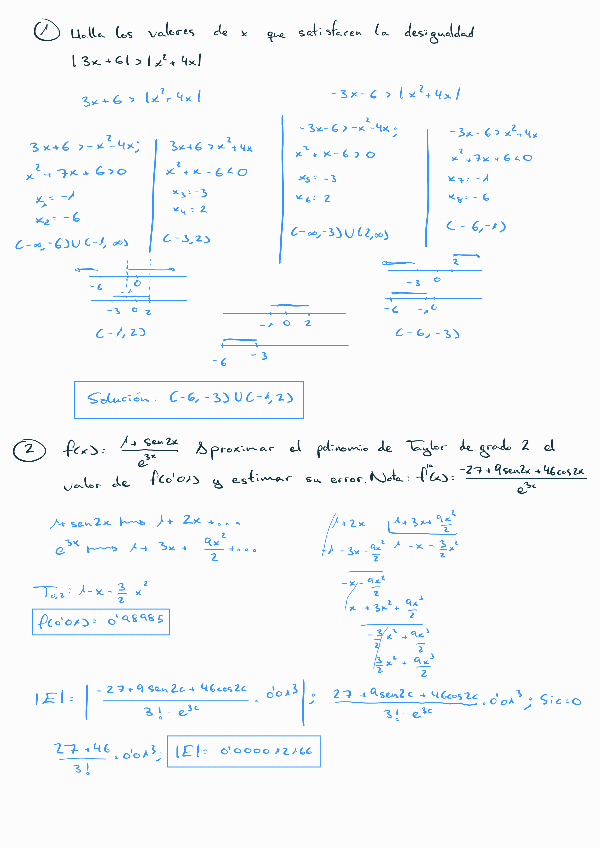 1 Halla los valores de x que satisfacen la desigualdad
|3x+6|>|x²+4x|
3x+6>|x²+4x|
-3x-6>|x²+4x|
3x+6>-x²-4x;
x²+7x+6>0
x₁=-1
x₂=-6
(-∞,-6)∪(-1,∞)
3x+6>x²+4x
x²+x-6<0
x₃=-3
x₄=2
(-3,2)
-3x-6>-x²-4x;
x²+x-6>0
x₅=-3
x₆=2
(-∞,-3)∪(2,∞)
-3x-6>x²+4x
x²+7x+6<0
x₇=-1
x₈=-6
(-6,-1)
-6 -1 0
-3 0 2
(-1,2)
-1 0 2
-6 -3
2
-3 0
-6 -1 0
(-6,-3)
Solución: (-6,-3)∪(-1,2)
2 f(x): (1+sen2x)/e³ˣ Aproximar el polinomio de Taylor de grado 2 el
valor de f(0'01) y estimar su error. Nota: f'''(x): (-27+9sen2x+46cos2x)/e³ˣ
1+sen2x 1+2x+...
e³ˣ 1+3x+9x²/2+...
T₀,₂: 1-x-3/2 x²
f(0'01)= 0'98985
1+2x |1+3x+9x²/2
-1-3x-9x²/2 1-x-3/2x²
-x-9x²/2
x+3x²+9x³/2
-3/2x²+9x³/2
3/2x²+9x³/2
|E|= |(-27+9sen2c+46cos2c)/(3!·e³ᶜ)·0'01³|; (27+9sen2c+46cos2c)/(3!·e³ᶜ)·0'01³; Si c=0
(27+46)/3!·0'01³; |E|= 0'000012166